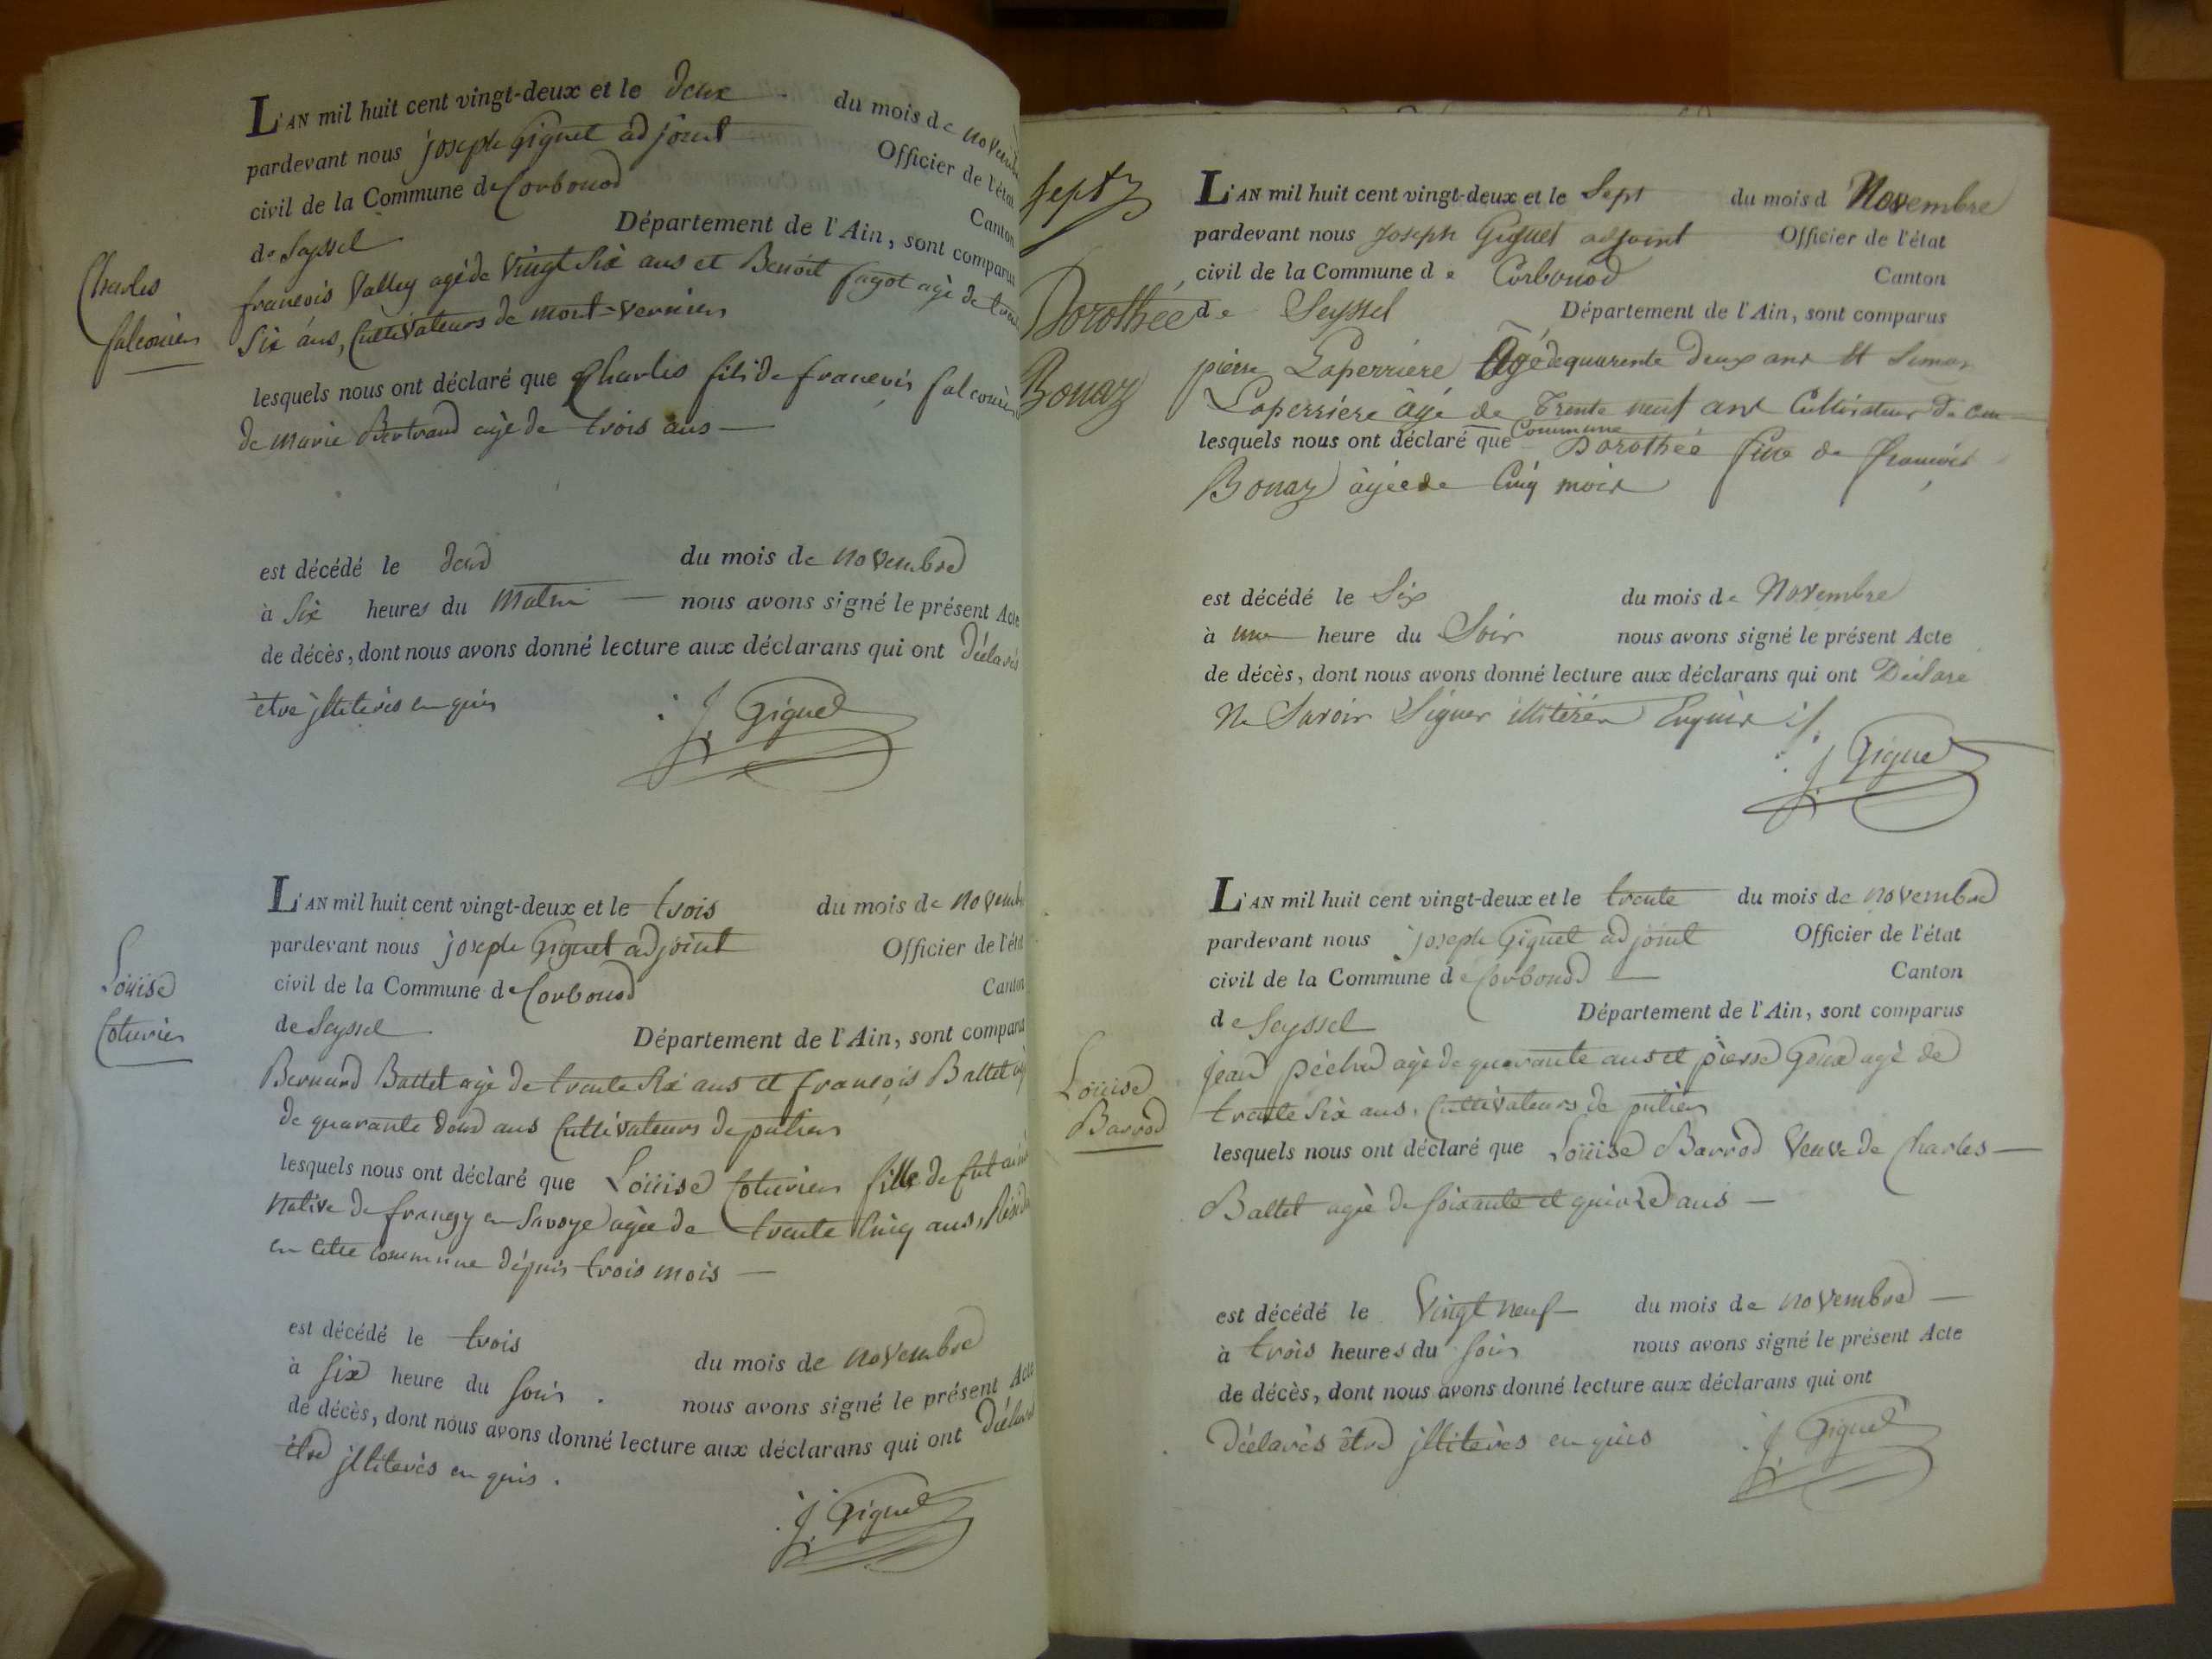 L'AN mil huit cent vingt-deux et le deux du mois de novembre
pardevant nous joseph Giguet adjoint Officier de l'état
civil de la Commune de Corbonod Canton
de Seyssel Département de l'Ain, sont comparus
francois Valley agé de vingt six ans et Benoit fagot agé de
Charles
falconier
six ans, Cultivateurs de mont-vernier
lesquels nous ont déclaré que Charles fils de francois falconier
de marie Bertrand agé de trois ans
est décédé le deux du mois de novembre
à six heures du matin nous avons signé le présent Acte
de décès, dont nous avons donné lecture aux déclarans qui ont déclarés
être jllitérés enquis
J. Giguet
L'AN mil huit cent vingt-deux et le trois du mois de novembre
pardevant nous joseph Giguet adjoint Officier de l'état
civil de la Commune de Corbonod Canton
Loüise
Coturier
de Seyssel Département de l'Ain, sont comparus
Bernard Battet agé de trente six ans et francois Battet agé
de quarante deux ans Cultivateurs de putier
lesquels nous ont déclaré que Loüise Coturier fille de
native de frangy en Savoye agée de trente cinq ans,
en cette commune dépuis trois mois
est décédé le trois du mois de novembre
à six heure du soir. nous avons signé le présent Acte
de décès, dont nous avons donné lecture aux déclarans qui ont déclarés
être jllitérés enquis.
J. Giguet
L'AN mil huit cent vingt-deux et le Sept du mois d Novembre
pardevant nous Joseph Giguet adjoint Officier de l'état
civil de la Commune de Corbonod Canton
Dorothée
Bonaz
de Seyssel Département de l'Ain, sont comparus
pierre Laperriere Agé de quarente deux ans et Simon
Laperriere agé de Trente neuf ans Cultivateur de cette
Commune
lesquels nous ont déclaré que Dorothée fille de francois
Bonaz agée de Cinq mois
est décédé le Six du mois de Novembre
à une heure du Soir nous avons signé le présent Acte
de décès, dont nous avons donné lecture aux déclarans qui ont Déclare
Ne Savoir Signer Enquis
J. Giguet
L'AN mil huit cent vingt-deux et le trente du mois de novembre
pardevant nous joseph Giguet adjoint Officier de l'état
civil de la Commune de Corbonod Canton
de Seyssel Département de l'Ain, sont comparus
Loüise
Barrod
jean péchod agé de quarante ans et pierre Goux agé de
trente six ans, Cultivateurs de putier
lesquels nous ont déclaré que Loüise Barrod Veuve de Charles
Battet agée de soixante et quinze ans
est décédé le vingt neuf du mois de novembre
à trois heures du soir nous avons signé le présent Acte
de décès, dont nous avons donné lecture aux déclarans qui ont
déclarés être jllitérés enquis
J. Giguet